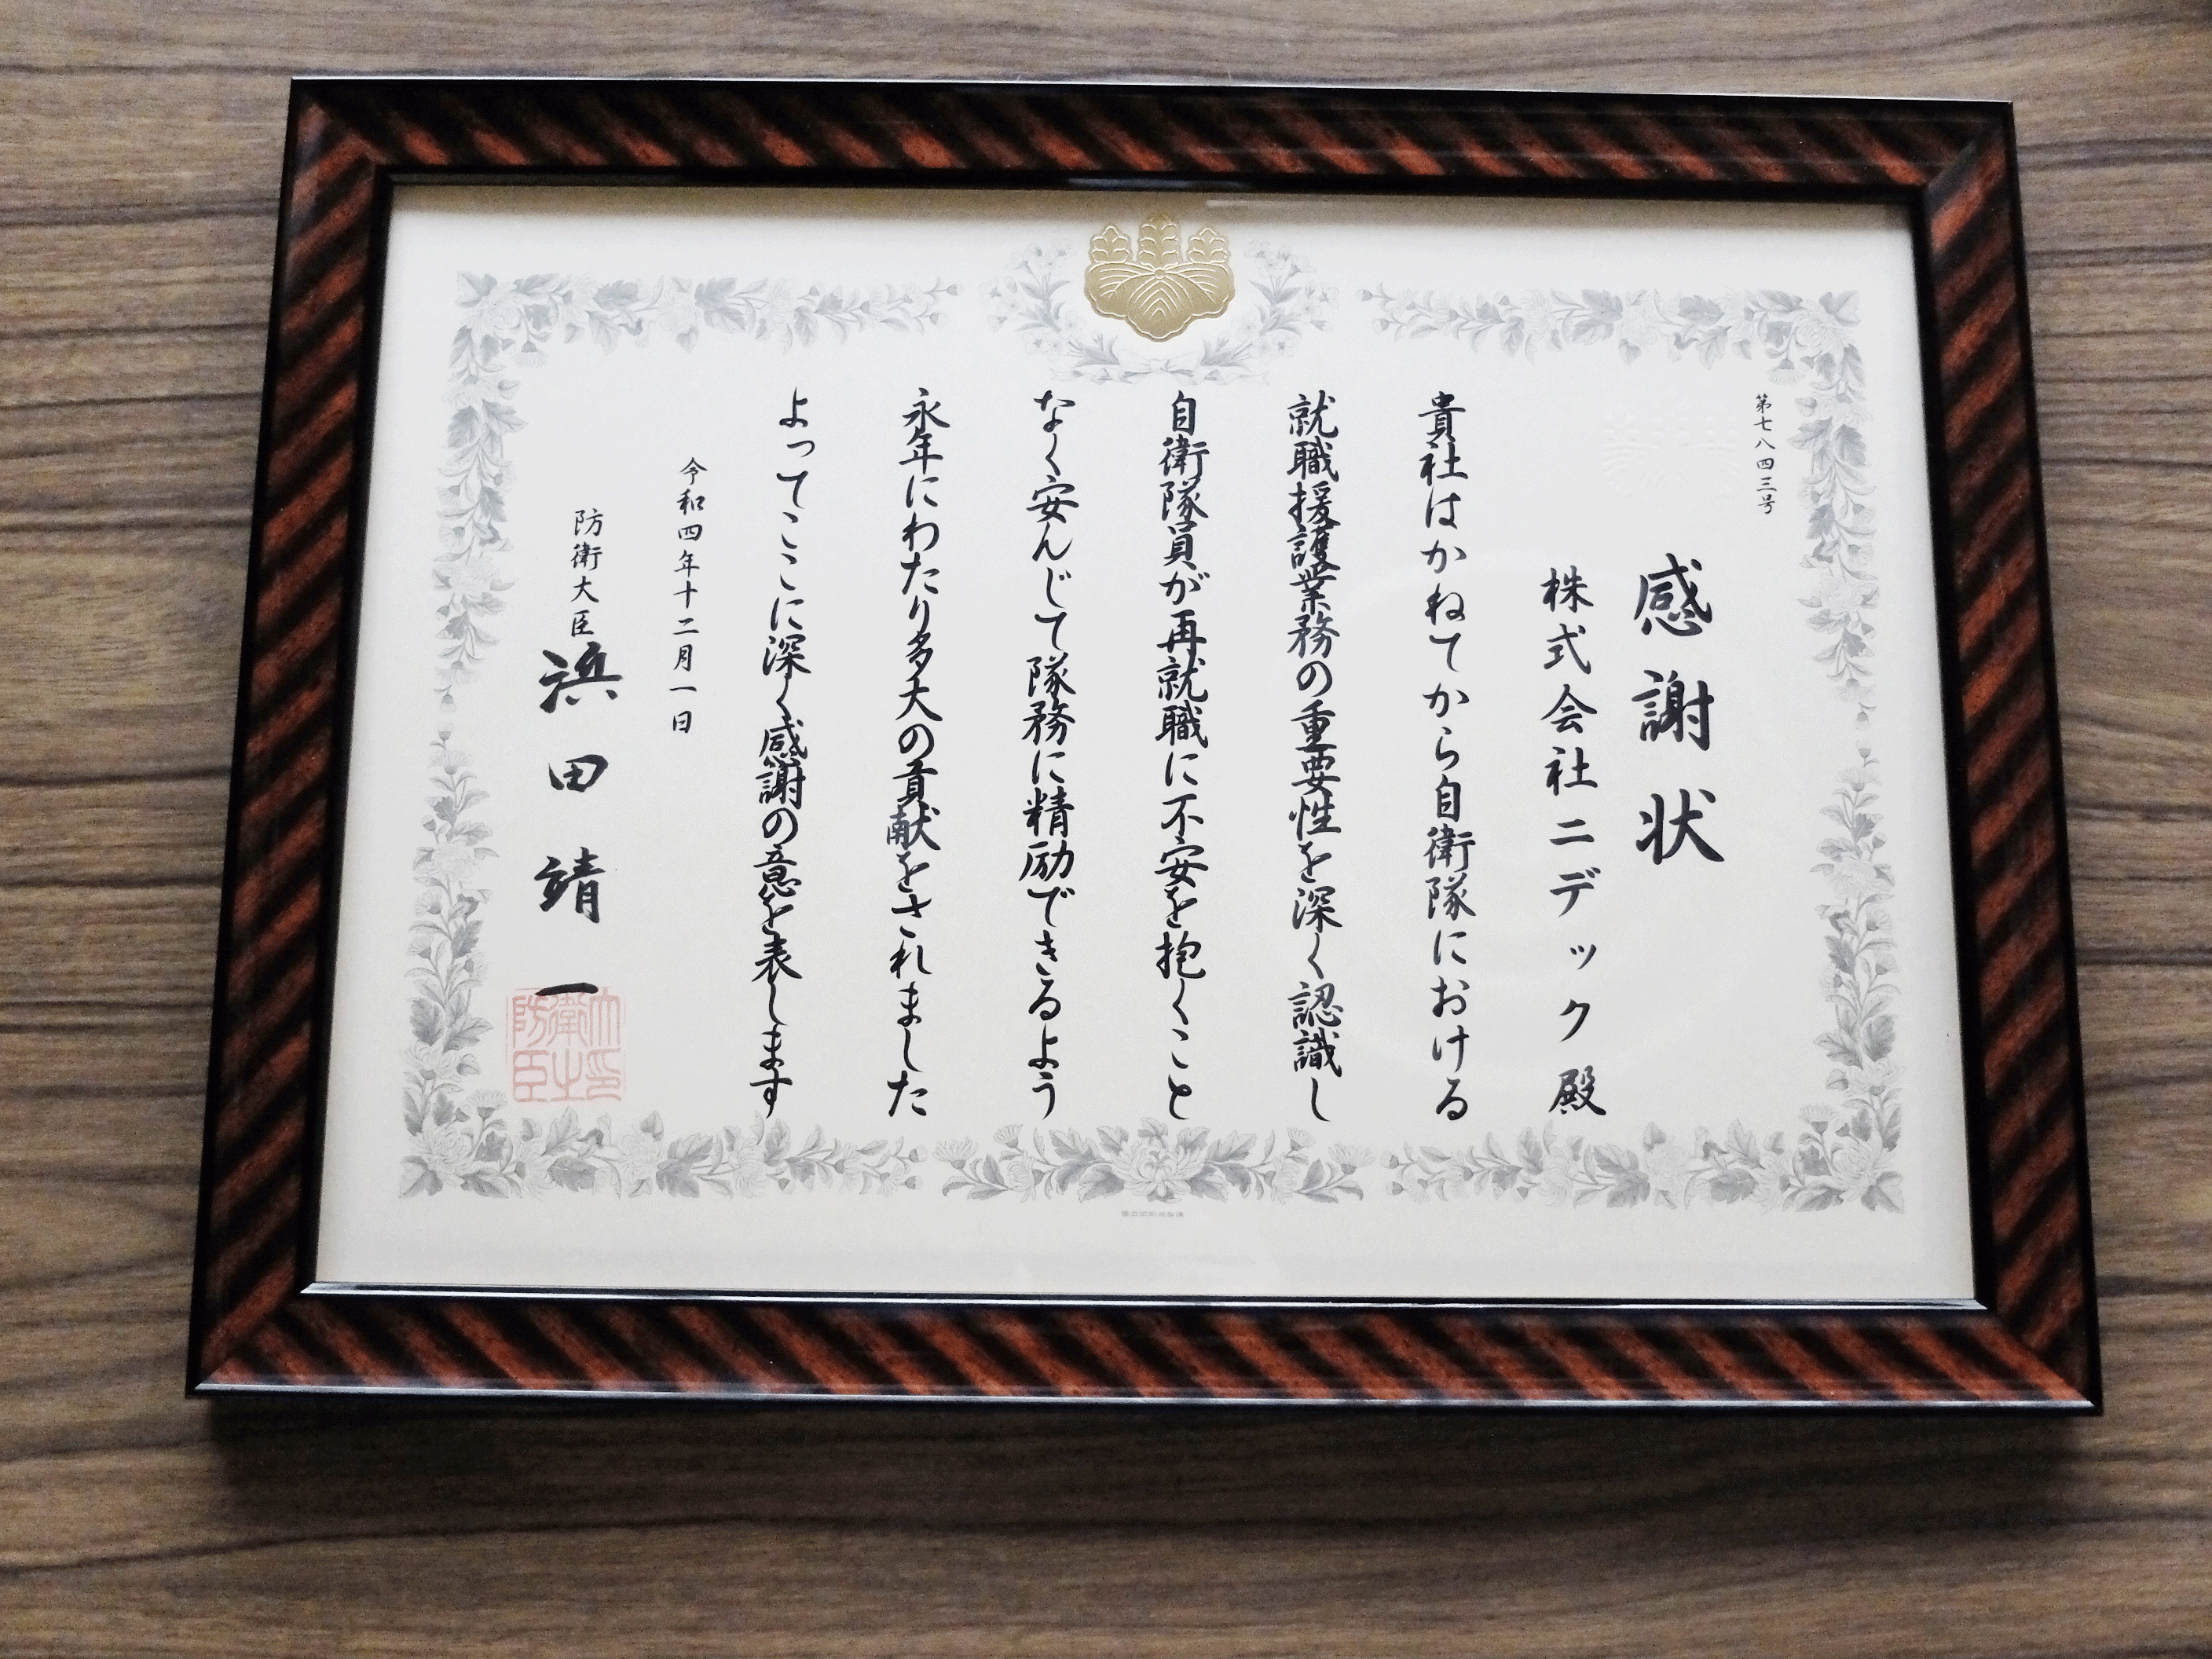 第七八四三号
感謝状
株式会社ニデック 殿
貴社はかねてから自衛隊における
就職援護業務の重要性を深く認識し
自衛隊員が再就職に不安を抱くこと
なく安んじて隊務に精励できるよう
永年にわたり多大の貢献をされました
よってここに深く感謝の意を表します
令和四年十二月一日
防衛大臣 浜田靖一
大臣之印防衛